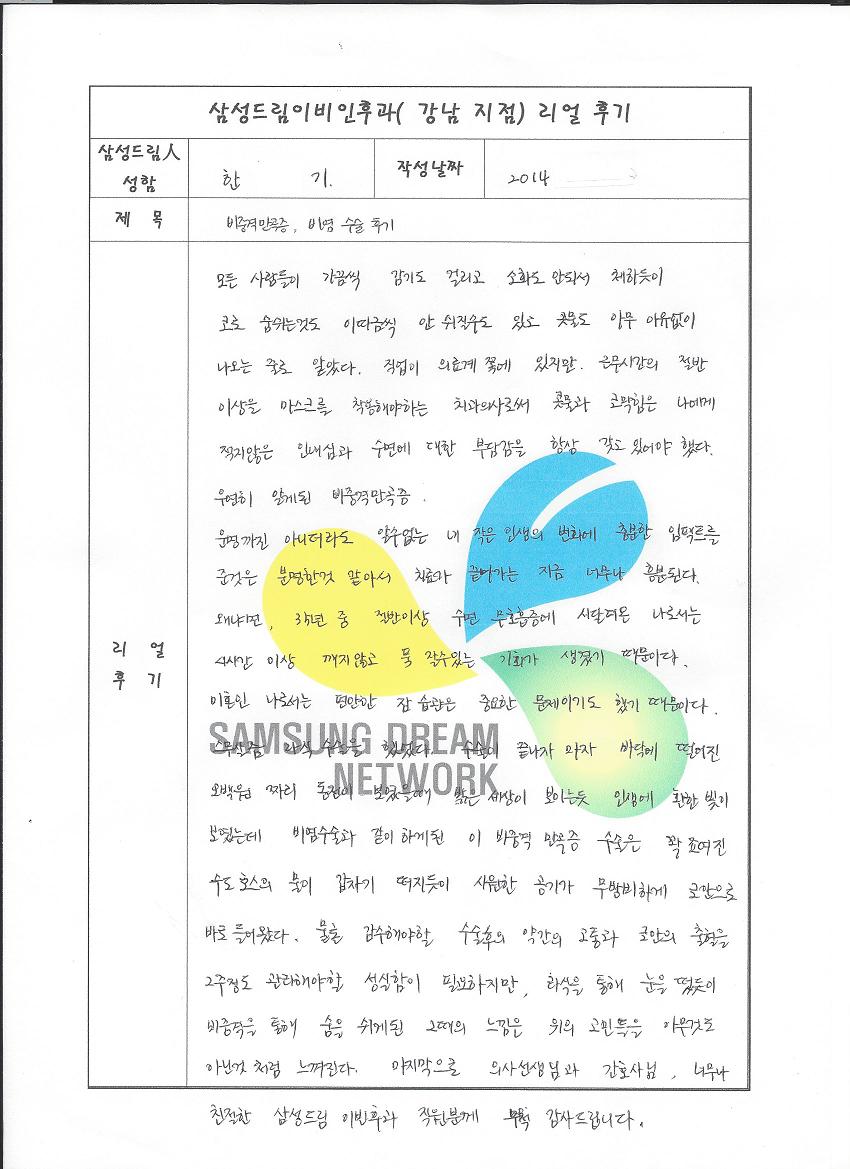 삼성드림이비인후과( 강남 지점) 리얼 후기
삼성드림人
성함
한 기.
작성날짜
2014
제 목
비중격만곡증, 비염 수술 후기
모든 사람들이 가끔씩 감기도 걸리고 소화도 안되서 체하듯이
코로 숨쉬는것도 이따금씩 안 쉬질수도 있고 콧물도 아무 이유없이
나오는 줄로 알았다. 직업이 의료계 쪽에 있지만. 근무시간의 절반
이상을 마스크를 착용해야하는 치과의사로써 콧물과 코막힘은 나에게
적지않은 인내심과 수면에 대한 부담감을 항상 갖고 있어야 했다.
우연히 알게된 비중격만곡증.
운명까진 아니더라도 알수없는 내 작은 인생의 변화에 충분한 임팩트를
준것은 분명한것 같아서 치료가 끝나가는 지금 너무나 흥분된다.
왜냐면, 35년 중 절반이상 수면 무호흡증에 시달려온 나로서는
4시간 이상 깨지않고 푹 잘수있는 기회가 생겼기 때문이다.
미혼인 나로서는 편안한 잠 습관은 중요한 문제이기도 했기 때문이다.
라식 수술을 했었다. 수술이 끝나자 마자 바닥에 떨어진
오백원 짜리 동전이 보였을때 밝은 세상이 보이는듯 인생에 환한 빛이
보였는데 비염수술과 같이 하게된 이 비중격 만곡증 수술은 꽉 조여진
수도 호스의 물이 갑자기 터지듯이 시원한 공기가 무방비하게 코안으로
바로 들어왔다. 물론 감수해야할 수술후의 약간의 고통과 코안의 출혈을
2주정도 관리해야할 성실함이 필요하지만, 라식을 통해 눈을 떴듯이
비중격을 통해 숨을 쉬게된 그때의 느낌은 위의 고민들을 아무것도
아닌것 처럼 느껴진다. 마지막으로 의사선생님과 간호사님, 너무나
친절한 삼성드림 이빈후과 직원분께 감사드립니다.
리 얼
후 기
SAMSUNG DREAM
NETWORK